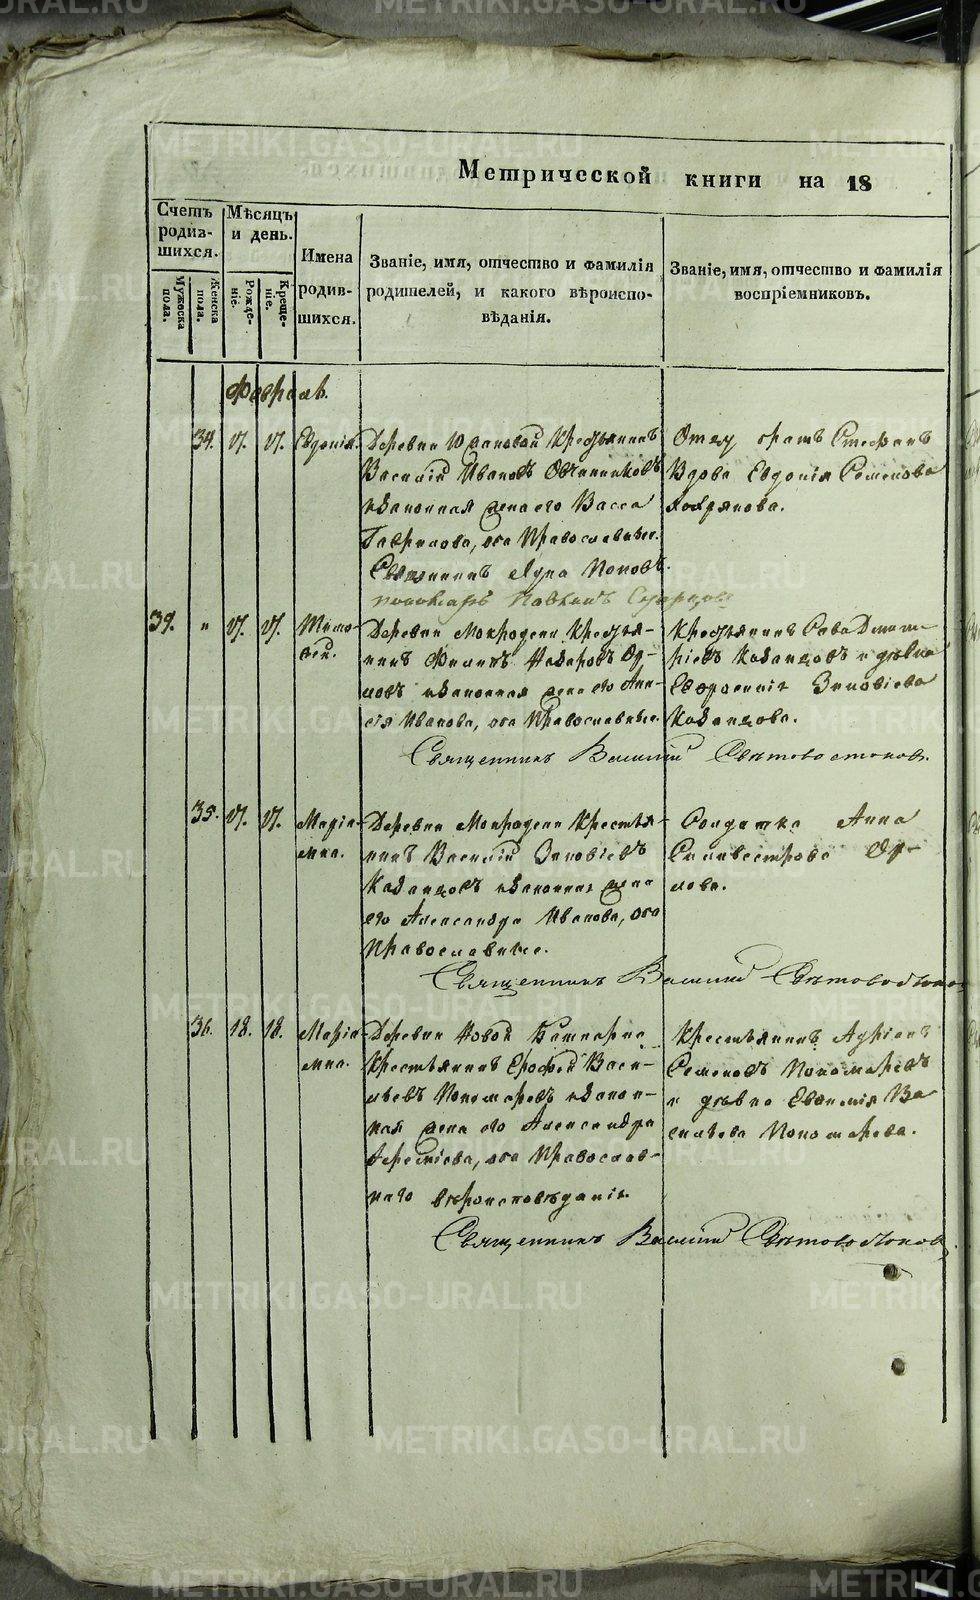 METRIKI.GASO-URAL.RU
Метрической книги на 18
Счетъ родив-
шихся.
Мужеска пола.
Женска пола.
Мѣсяцъ и день.
Рожде-
ніе.
Креще-
ніе.
Имена
родив-
шихся.
Званіе, имя, отчество и фамилія
родителей, и какого вѣроиспо-
вѣданія.
Званіе, имя, отчество и фамилія
воспріемниковъ.
Февраль.
34. 17. 17. Евдокія.
Деревни Крестьянинъ
Василій Ивановъ Овчинниковъ
и законная жена его Васса
Гаврилова, оба Православные.
Священникъ Попов.
Отецу братъ Стефанъ
Вдова Евдокія Семенова
39. " 17. 17. Тимо-
ѳей.
Деревни Мокродени Крестья-
нинъ Филипъ Назаровъ Ор-
ловъ и законная жена его Ани-
сія Иванова, оба Православные.
Священникъ Василий Святовостоков.
Крестьянинъ Сава Димит-
ріевъ Казанцовъ и дѣвка
Евфросинія Зиновіева
Казанцова.
35. 17. 17. Маріа-
мна.
Деревни Мокродени Крестья-
нинъ Василій Зиновіевъ
Казанцовъ и законная жена
его Александра Иванова, оба
Православные.
Священникъ Василий Святовостоков
Солдатка Анна
Силивестрова Ор-
лова.
36. 18. 18. Маріа-
мна.
Деревни Новой
Крестьянинъ Ерофей Васи-
льевъ Пономаревъ и закон-
ная жена его Александра
оба Православ-
наго вѣроисповѣданія.
Священникъ Василий Святовостоков.
Крестьянинъ Адріанъ
Семеновъ Пономаревъ
и дѣвка Евфимія Ва-
сильева Пономарева.